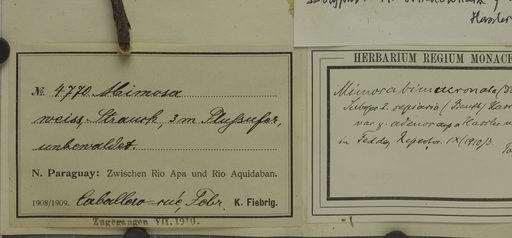 Hassler
№ 4770 Mimosa
weiss, Strauch, 3 m Flußufer,
unbewaldet.
N. Paraguay: Zwischen Rio Apa und Rio Aquidaban.
1908/1909. Caballero-cué, Febr. K. Fiebrig.
Zugegangen VII. 1910.
HERBARIUM REGIUM MONACE
Mimosa bimucronata
Subsp. 2. sepiaria (Benth) Hass
var γ. adenocarpa Hassler
in Fedde, Repert. IX/1910/3.